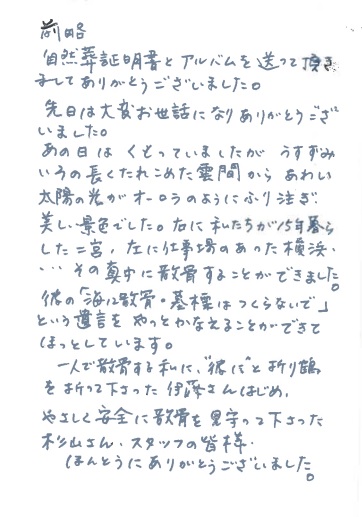 前略
自然葬証明書とアルバムを送って頂き
ましてありがとうございました。
先日は大変お世話になりありがとうござ
いました。
あの日は くもっていましたが うすずみ
いろの長くたれこめた雲間から あわい
太陽の光がオーロラのようにふり注ぎ
美しい景色でした。右に私たちが15年暮ら
した二宮、左に仕事場のあった横浜・
・・・その真中に散骨することができました。
彼の「海に散骨・墓標はつくらないで」
という遺言を やっとかなえることができて
ほっとしています。
一人で散骨する私に、“彼に”と折り鶴
を折って下さった 伊藤さんはじめ、
やさしく安全に散骨を見守って下さった
杉山さん、スタッフの皆様・
ほんとうにありがとうございました。